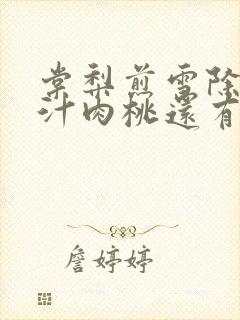 棠梨煎雪除
汁肉桃還有
詹婷婷